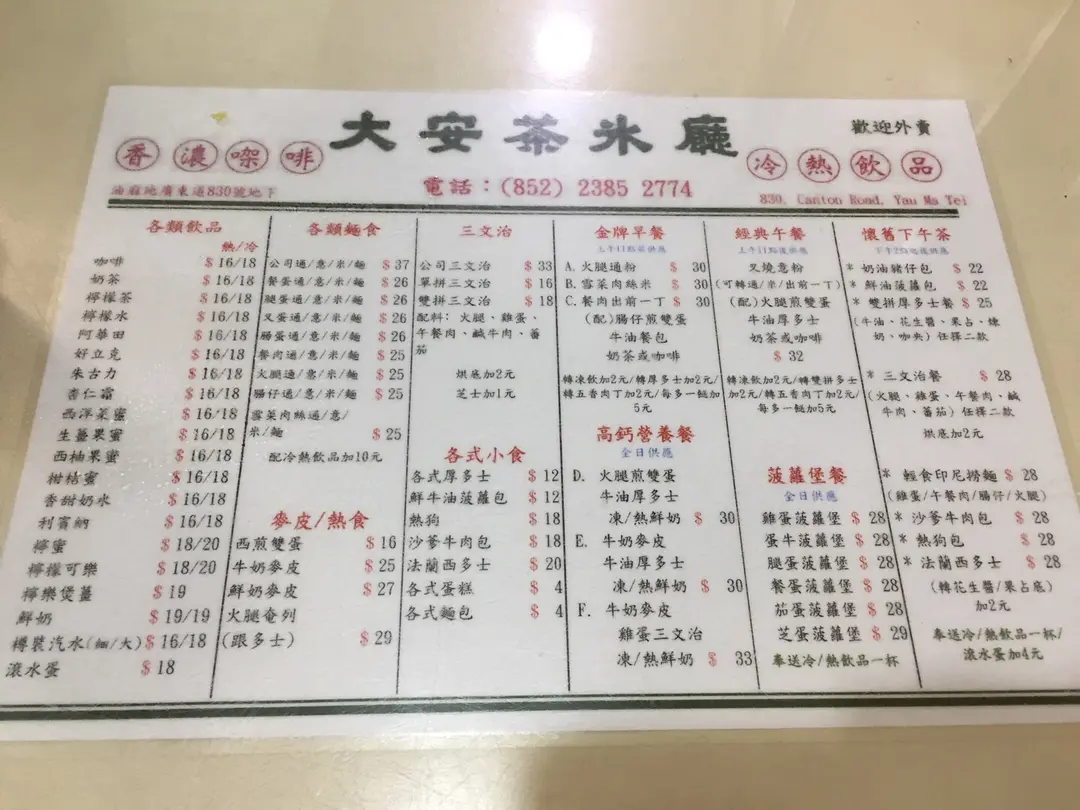 大安茶氷廳
歡迎外賣
香濃㗎啡
冷熱飲品
油麻地廣東道830號地下
電話：(852) 2385 2774
830, Canton Road, Yau Ma Tei
各類飲品
熱/冷
咖啡 $ 16/18
奶茶 $ 16/18
檸檬茶 $ 16/18
檸檬水 $ 16/18
阿華田 $ 16/18
好立克 $ 16/18
朱古力 $ 16/18
杏仁霜 $ 16/18
西洋菜蜜 $ 16/18
生薑果蜜 $ 16/18
西柚果蜜 $ 16/18
柑桔蜜 $ 16/18
香甜奶水 $ 16/18
利賓納 $ 16/18
檸蜜 $ 18/20
檸檬可樂 $ 18/20
檸樂煲薑 $ 19
鮮奶 $ 19/19
樽裝汽水(細/大) $ 16/18
滾水蛋 $ 18
各類麵食
公司通/意/米/麵 $ 37
餐蛋通/意/米/麵 $ 26
腿蛋通/意/米/麵 $ 26
叉蛋通/意/米/麵 $ 26
腸蛋通/意/米/麵 $ 26
餐肉通/意/米/麵 $ 25
火腿通/意/米/麵 $ 25
腸仔通/意/米/麵 $ 25
雪菜肉絲通/意/
米/麵 $ 25
配冷熱飲品加10元
麥皮/熱食
西煎雙蛋 $ 16
牛奶麥皮 $ 25
鮮奶麥皮 $ 27
火腿奄列
(跟多士) $ 29
三文治
公司三文治 $ 33
單拼三文治 $ 16
雙拼三文治 $ 18
配料：火腿、雞蛋、
午餐肉、鹹牛肉、蕃
茄
烘底加2元
芝士加1元
各式小食
各式厚多士 $ 12
鮮牛油菠蘿包 $ 12
熱狗 $ 18
沙爹牛肉包 $ 18
法蘭西多士 $ 20
各式蛋糕 $ 4
各式麵包 $ 4
金牌早餐
上午11點前供應
A. 火腿通粉 $ 30
B. 雪菜肉絲米 $ 30
C. 餐肉出前一丁 $ 30
(配)腸仔煎雙蛋
牛油餐包
奶茶或咖啡
轉凍飲加2元/轉厚多士加2元/
轉五香肉丁加2元/每多一餸加
5元
高鈣營養餐
全日供應
D. 火腿煎雙蛋
牛油厚多士
凍/熱鮮奶 $ 30
E. 牛奶麥皮
牛油厚多士
凍/熱鮮奶 $ 30
F. 牛奶麥皮
雞蛋三文治
凍/熱鮮奶 $ 33
經典午餐
上午11點後供應
叉燒意粉
(可轉通/米/出前一丁)
(配)火腿煎雙蛋
牛油厚多士
奶茶或咖啡
$ 32
轉凍飲加2元/轉雙拼多士
加2元/轉五香肉丁加2元/
每多一餸加5元
菠蘿堡餐
全日供應
雞蛋菠蘿堡 $ 28
蛋牛菠蘿堡 $ 28
腿蛋菠蘿堡 $ 28
餐蛋菠蘿堡 $ 28
茄蛋菠蘿堡 $ 28
芝蛋菠蘿堡 $ 29
奉送冷/熱飲品一杯
懷舊下午茶
下午2點起供應
* 奶油豬仔包 $ 22
* 鮮油菠蘿包 $ 22
* 雙拼厚多士餐 $ 25
(牛油、花生醬、果占、煉
奶、咖央) 任擇二款
* 三文治餐 $ 28
(火腿、雞蛋、午餐肉、鹹
牛肉、蕃茄) 任擇二款
烘底加2元
* 輕食印尼撈麵 $ 28
(雞蛋/午餐肉/腸仔/火腿)
* 沙爹牛肉包 $ 28
* 熱狗包 $ 28
* 法蘭西多士 $ 28
(轉花生醬/果占底)
加2元
奉送冷/熱飲品一杯/
滾水蛋加4元